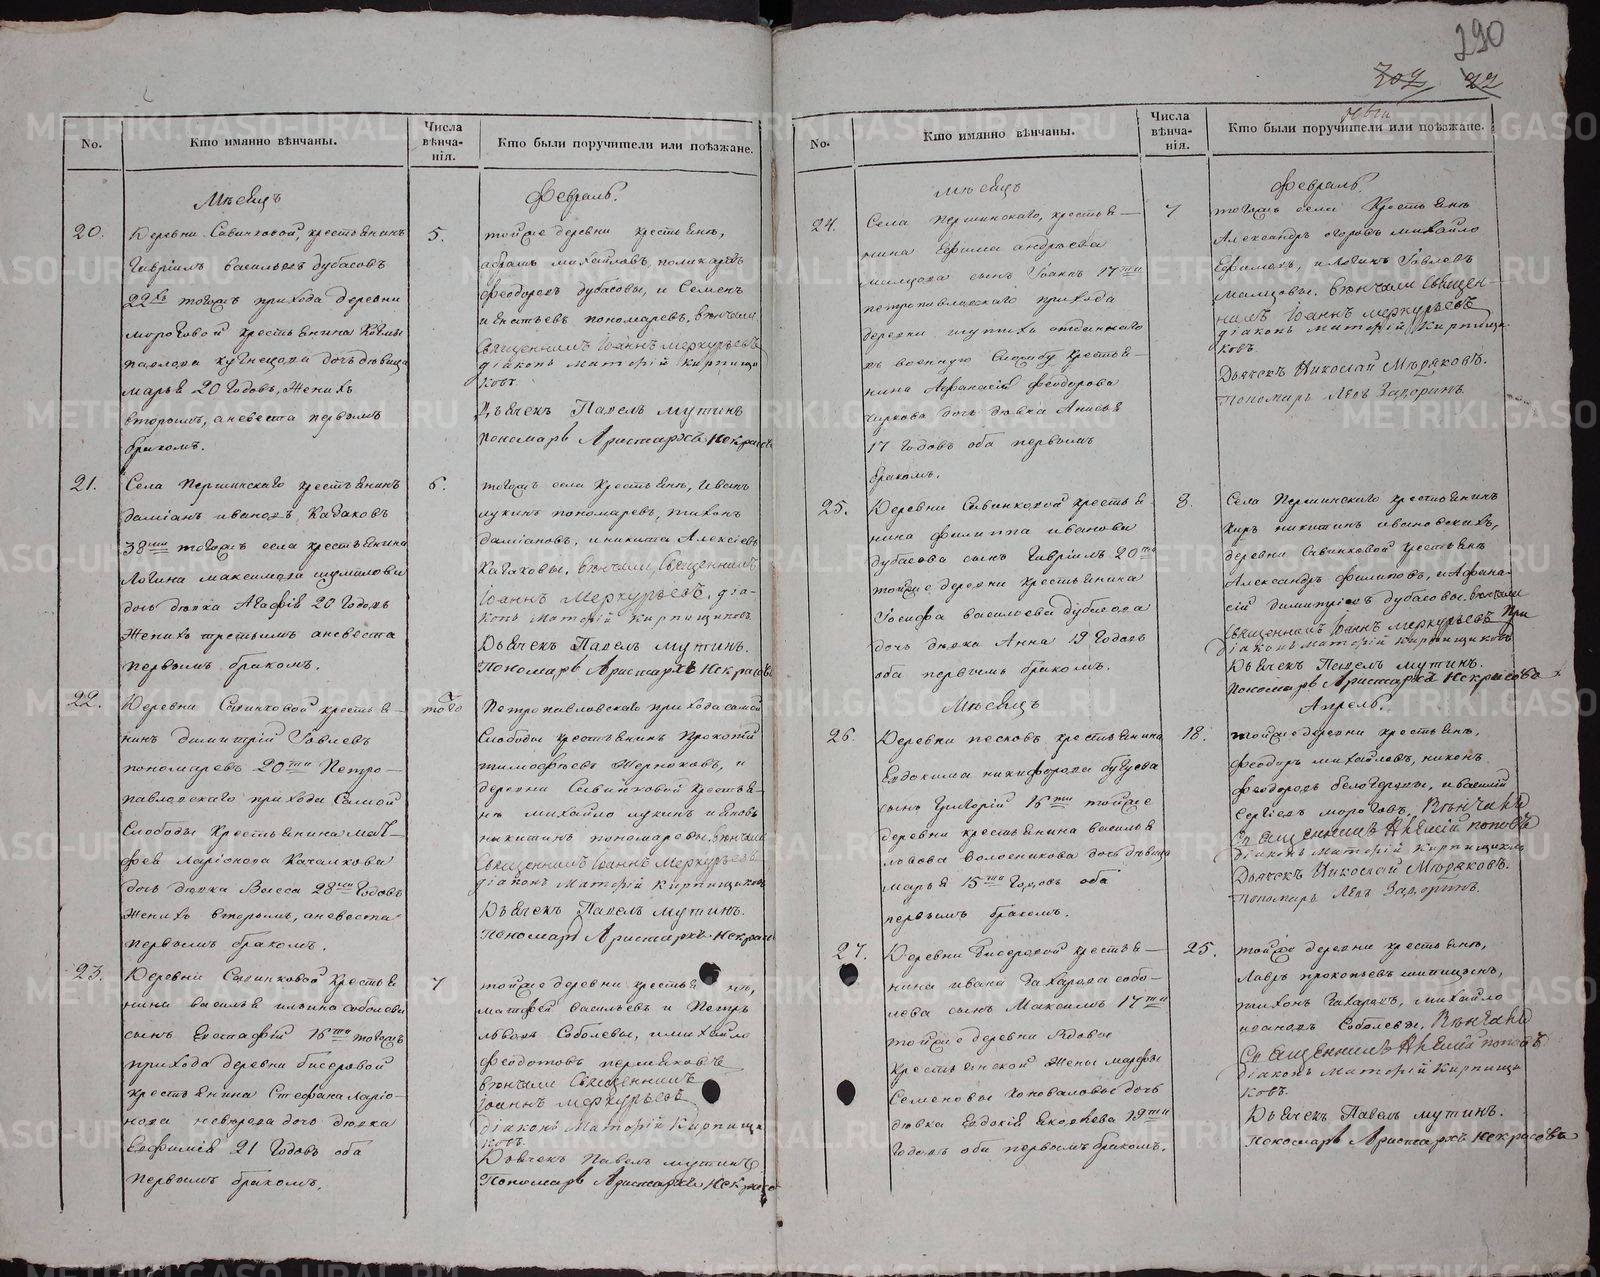 290
207 22
No.
Кто имянно вѣнчаны.
Числа
вѣнча-
нія.
Кто были поручители или поѣзжане.
Мѣсяцъ
Февраль.
20.
Деревни Савинковой, крестьянинъ
Гавріилъ Васильевъ Дубасовъ
22хъ тогожъ прихода деревни
Морозовой крестьянина Козмы
Павлова Кузнецова дочь дѣвица
Марья 20 годовъ, женихъ
вторымъ, а невеста первымъ
бракомъ.
5.
тойже деревни крестьяне,
Михайловъ, Поликарпъ
Феодоровъ Дубасовы, и Семенъ
Игнатьевъ Пономаревъ, вѣнчали
Священникъ Іоаннъ Меркурьевъ
діаконъ Матѳій Кирпищи
ковъ.
Дьячекъ Павелъ Мутинъ
Пономарь Аристархъ Некрасовъ
21.
Села Першинскаго крестьянинъ
Даміанъ Ивановъ Казаковъ
38ми тогожъ села крестьянина
Логина Максимова Шумилова
дочь дѣвка Агафія 20 годовъ
женихъ третьимъ а невеста
первымъ бракомъ.
6.
тогожъ села крестьяне, Иванъ
Лукинъ Пономаревъ, Тихонъ
Даміановъ, и Никита Алексѣевъ
Казаковы. вѣнчали, Священникъ
Іоаннъ Меркурьевъ. діа-
конъ Матѳій Кирпищиковъ
Дьячекъ Павелъ Мутинъ.
Пономарь Аристархъ Некрасовъ
22.
Деревни Савинковой крестья-
нинъ Димитрій Іовлевъ
Пономаревъ 20ти Петро-
павловскаго прихода Самой
Слободы крестьянина Мат-
фея Ларіонова Качалкова
дочь дѣвка Васса 28ми годовъ
женихъ вторымъ, а невеста
первымъ бракомъ.
того
Петропавловскаго прихода самой
Слободы крестьянинъ Прокопій
Тимофѣевъ Черноковъ, и
деревни Савинковой крестья-
не Михайло Лукинъ и Яковъ
Никитинъ Пономаревы. вѣнчали
Священникъ Іоаннъ Меркурьевъ
діаконъ Матѳій Кирпищиковъ
Дьячекъ Павелъ Мутинъ.
Пономарь Аристархъ Некрасовъ
23.
Деревни Савинковой крестья
нина Василья Ильина Соболева
сынъ Евстафій 16ти тогожъ
прихода деревни Бисеровой
крестьянина Стефана Ларіо-
нова дочь дѣвка
Евфимія 21 годовъ оба
первымъ бракомъ.
7
тойже деревни крестьяне,
Матфей Васильевъ и Петръ
Львовъ Соболевы, и Михайло
Федотовъ Пермяковъ
вѣнчали Священникъ
Іоаннъ Меркурьевъ
діаконъ Матѳій Кирпищи
ковъ.
Дьячекъ Павелъ Мутинъ
Пономарь Аристархъ Некрасовъ
No.
Кто имянно вѣнчаны.
Числа
вѣнча-
нія.
Кто были поручители или поѣзжане.
Мѣсяцъ
Февраль.
24.
Села Першинскаго, крестья-
нина Ефима Андрѣева
Мальцова сынъ Іоаннъ 17ти
Петропавловскаго прихода
деревни отданнаго
въ военную службу крестья-
нина Афанасія Феодорова
Чиркова дочь дѣвка Анисья
17 годовъ оба первымъ
бракомъ.
7
тогожъ села крестьяне
Александръ Егоровъ Михайло
Ефимовъ, и Логинъ Іовлевъ
Мальцовы. вѣнчали Священ-
никъ Іоаннъ Меркурьевъ
діаконъ Матѳій Кирпищи-
ковъ.
Дьячекъ Николай Мѣдяковъ.
Пономарь Левъ Задоринъ.
25.
Деревни Савинковой крестья
нина Филиппа Иванова
Дубасова сынъ Гавріилъ 20ти
тойже деревни крестьянина
Іосифа Васильева Дубасова
дочь дѣвка Анна 19 годовъ
оба первымъ бракомъ.
8.
Села Першинскаго крестьянинъ
Киръ Никитинъ Ивановскихъ,
деревни Савинковой крестьяне
Александръ Филиповъ, и Афана-
сій Димитріевъ Дубасовы. вѣнчали
Священникъ Іоаннъ Меркурьевъ При
діаконъ Матѳій Кирпищиковъ
Дьячекъ Павелъ Мутинъ.
Пономарь Аристархъ Некрасовъ
Мѣсяцъ
Апрель.
26.
Деревни Песковъ крестьянина
Евдокима Никифорова Бугуева
сынъ Григорій 16ти тойже
деревни крестьянина Василья
Львова Волосникова дочь дѣвица
Марья 15ти годовъ оба
первымъ бракомъ.
18.
тойже деревни крестьяне,
Феодоръ Михайловъ, Никонъ
Феодоровъ Белоусовы, и Василій
Сергѣевъ Морозовъ. Вѣнчали
Священникъ Алексій Поповъ
діаконъ Матѳій Кирпищиковъ
Дьячекъ Николай Мѣдяковъ.
Пономарь Левъ Задоринъ.
27.
Деревни Бисеровой крестья-
нина Ивана Захарова Собо-
лева сынъ Максимъ 17ти
тойже деревни Вдовы
крестьянской жены Марфы
Семеновы Коноваловы дочь
дѣвка Евдокія Яковлева 19ти
годовъ оба первымъ бракомъ.
25.
тойже деревни крестьяне,
Лавръ Прокопьевъ Шипицынъ,
Тихонъ Захаровъ, Михайло
Ивановъ Соболевы. Вѣнчали
Священникъ Алексій Поповъ
діаконъ Матѳій Кирпищи
ковъ.
Дьячекъ Павелъ Мутинъ.
Пономарь Аристархъ Некрасовъ
METRIKI.GASO-URAL.RU